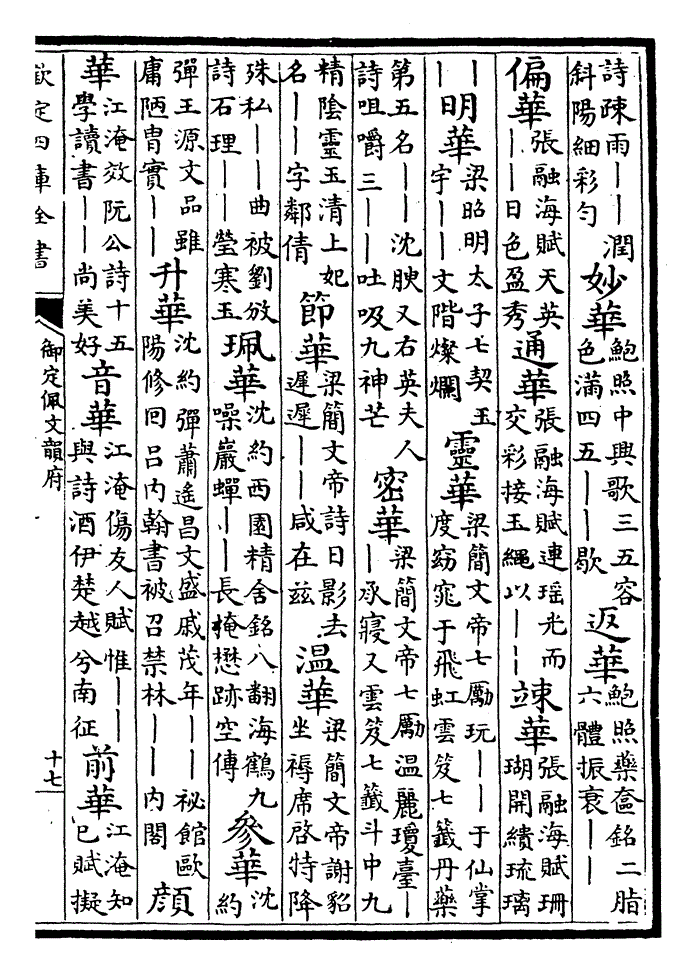 詩疎雨丨丨潤斜陽細彩勻妙華鮑照中興歌三五容色滿四五丨丨歇返華鮑照藥奩銘二脂六體振衰丨丨
偏華張融海賦天英丨丨日色盈秀通華張融海賦連瑶光而交彩接玉繩以丨丨竦華張融海賦珊瑚開繢琉璃
丨丨明華梁昭明太子七契玉宇丨丨文階燦爛靈華梁簡文帝七勵玩丨丨于仙掌度窈窕于飛虹雲笈七籤丹藥
第五名丨丨沈腴又右英夫人詩咀嚼三丨丨吐吸九神芒密華梁簡文帝七勵温麗瓊臺丨丨承寢又雲笈七籤斗中九
精陰靈玉清上妃名丨丨字鄰倩節華梁簡文帝詩日影去遲遲丨丨咸在兹温華梁簡文帝謝貂坐褥席啓特降
殊私丨丨曲被劉攽詩石理丨丨瑩寒玉珮華沈約西園精舍銘八翻海鶴九噪巖蟬丨丨長掩懋跡空傳參華沈約
彈王源文品雖庸陋胄實丨丨升華沈約彈蕭遥昌文盛戚茂年丨丨祕館歐陽修回吕内翰書被召禁林丨丨内閣顔
華江淹效阮公詩十五學讀書丨丨尚美好音華江淹傷友人賦惟丨丨與詩酒伊楚越兮南征前華江淹知已賦擬
欽定四庫全書
御定佩文韻府
十七